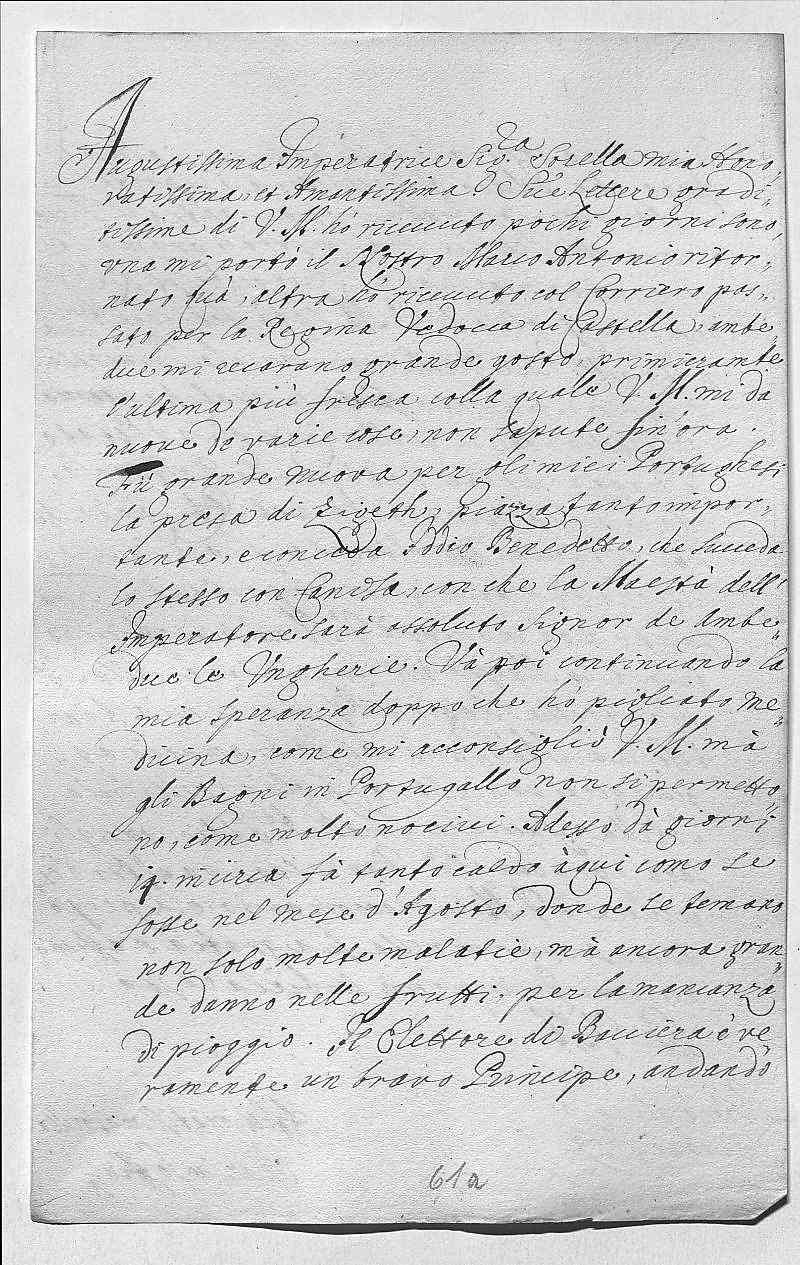 Augustissima Imperatrice Sig.ra Sorella mia Hono,,
ratissima, et Amantissima. Due Lettere gradi,,
tissime di V. M. hò riceuuto pochi giorni sono,
vna mi portò il Nostro Marco Antonio ritor,,
nato quà, altra hò riceuuto col Corriero pas,,
sato per la Regina Vedoua di Castella, ambe
due mi recarano grande gosto, primieramte
l'altima più fresca colla quale V. M. mi da
nuoue de varie cose, non sapute fin'ora.
Fù grande nuoua per gl'imici Portughesi
la presa di Zigeth, piazza tanto impor,,
tante, e conceda Iddio Benedetto, che succeda
lo stesso con Canisa, con che la Maestà dell'
Imperatore sarà assoluto Signor de Ambe,,
due le Vngherie. Và poi continuando la
mia speranza doppo che hò pigliato me,,
dicina, come mi acconsigliò V. M. mà
gli Bagni in Portugallo non si permetto,,
no, come molto nociui. Adesso dà giorni
in circa fà tanto caldo àqui como se
fosse nel mese d'Agosto, donde se temano
non solo molte malatie, mà ancora gran,,
de danno nelle frutti, per la mancanza
di pioggio. Il Elettore di Bauiera è ve,,
ramente un bravo Principe, andando
61a